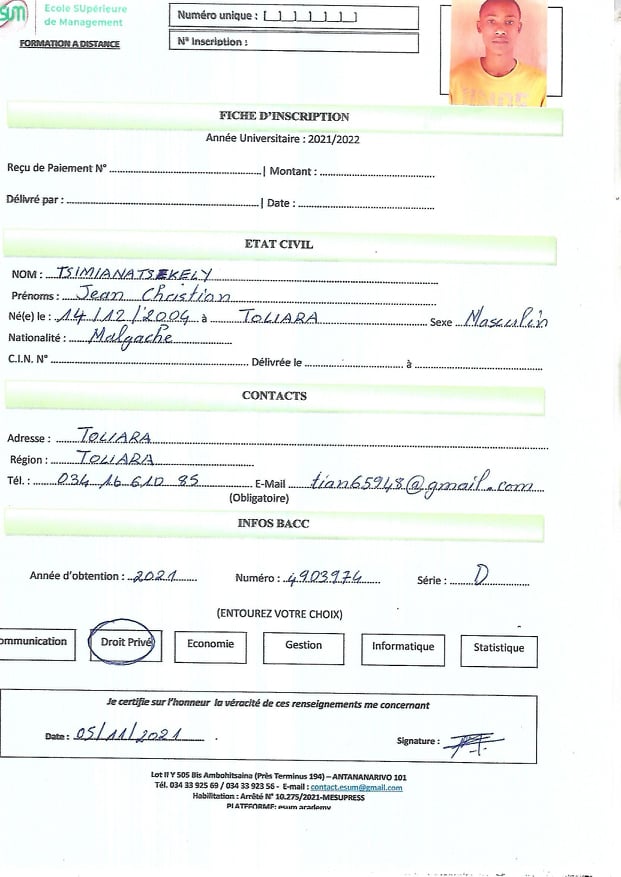 ESUM
Ecole SUpérieure
de Management
FORMATION A DISTANCE
Numéro unique : [_]_]_]_]_]_]
N° Inscription :
FICHE D'INSCRIPTION
Année Universitaire : 2021/2022
Reçu de Paiement N° ........ | Montant : ........
Délivré par : ........ | Date : ........
ETAT CIVIL
NOM : TSIMIANATSEKELY
Prénoms : Jean Christian
Né(e) le : 14/12/2004 à TOLIARA Sexe Masculin
Nationalité : Malgache
C.I.N. N° ........ Délivrée le ........ à ........
CONTACTS
Adresse : TOLIARA
Région : TOLIARA
Tél. : 034 16 610 85 E-Mail tian65948@gmail.com
(Obligatoire)
INFOS BACC
Année d'obtention : 2021 Numéro : 4903974 Série : D
(ENTOUREZ VOTRE CHOIX)
ommunication Droit Privé Economie Gestion Informatique Statistique
Je certifie sur l'honneur la véracité de ces renseignements me concernant
Date : 05/11/2021 Signature :
Lot II Y 505 Bis Ambohitsaina (Près Terminus 194) – ANTANANARIVO 101
Tél. 034 33 925 69 / 034 33 923 56 - E-mail : contact.esum@gmail.com
Habilitation : Arrêté N° 10.275/2021-MESUPRESS
PLATEFORME: esum academy